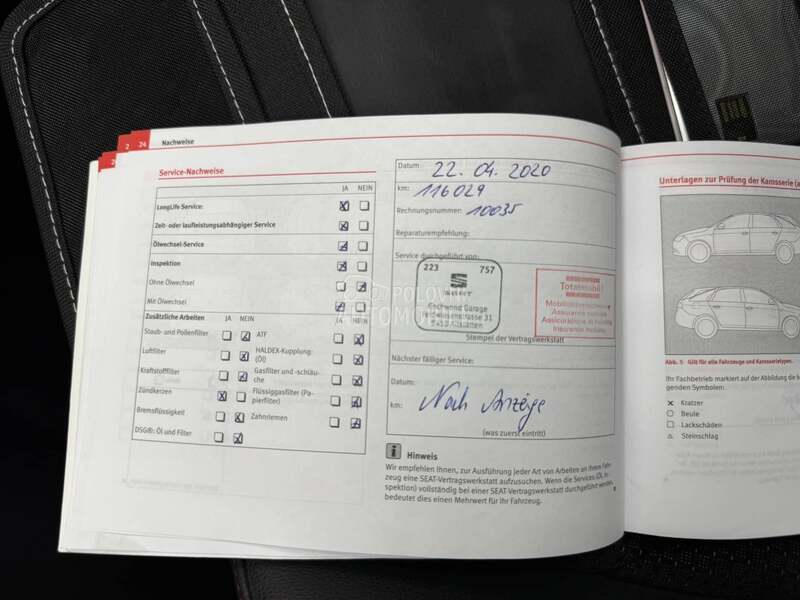 2 24 Nachweise
Service-Nachweise
JA NEIN
LongLife Service:
Zeit- oder laufleistungsabhängiger Service
Ölwechsel-Service
Inspektion
Ohne Ölwechsel
Mit Ölwechsel
Zusätzliche Arbeiten JA NEIN JA NEIN
Staub- und Pollenfilter ATF
Luftfilter HALDEX-Kupplung:
(Öl)
Kraftstofffilter Gasfilter und -schläu-
che
Zündkerzen Flüssiggasfilter (Pa-
pierfilter)
Bremsflüssigkeit Zahnriemen
DSG®: Öl und Filter
Datum: 22. 04. 2020
km: 116029
Rechnungsnummer: 10035
Reparaturempfehlung:
Service durchgeführt von:
223 757
SEAT
Garage
Totalmobil!
Mobilitätsversicherung
Assurance mobilité
Assicurazione di mobilità
Insurance mobility
Stempel der Vertragswerkstatt
Nächster fälliger Service:
Datum:
km: Nach Anzeige
(was zuerst eintritt)
POLOVNI
AUTOMOBILI
i Hinweis
Wir empfehlen Ihnen, zur Ausführung jeder Art von Arbeiten an Ihrem Fahr-
zeug eine SEAT-Vertragswerkstatt aufzusuchen. Wenn die Services (Öl, In-
spektion) vollständig bei einer SEAT-Vertragswerkstatt durchgeführt werden,
bedeutet dies einen Mehrwert für Ihr Fahrzeug.
Unterlagen zur Prüfung der Karosserie (a
Abb. 1 Gilt für alle Fahrzeuge und Karosserietypen.
Ihr Fachbetrieb markiert auf der Abbildung die
genden Symbolen:
Kratzer
Beule
Lackschäden
Steinschlag